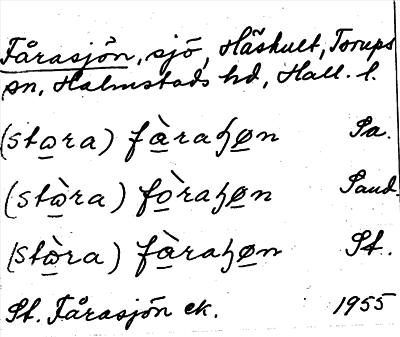 Fårasjön, sjö, Häshult, Torups
sn, Halmstads hd, Hall. l.
(stɷra) fàraɧøn Pa.
(stɷ̀ra) fòraɧøn Paud.
(stɷ̀ra) fàraɧøn Pt.
St. Fårasjön ek. 1955